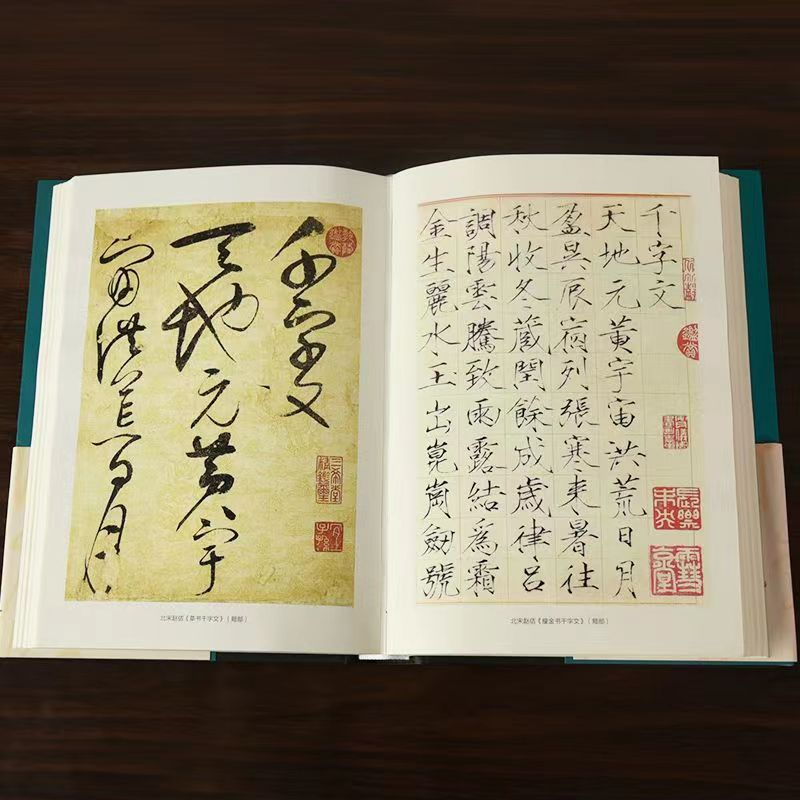 千字文
天地元黃宇
宙洪荒日月
三希堂精鑑璽
宜子孫
北宋赵佶《草书千字文》(局部)
千字文
天地元黃宇宙洪荒日月
盈昃辰宿列張寒来暑往
秋收冬藏閏餘成歲律呂
調陽雲騰致雨露結爲霜
金生麗水玉出崑崗劒號
鑑賞
長樂未央
北宋赵佶《瘦金书千字文》(局部)